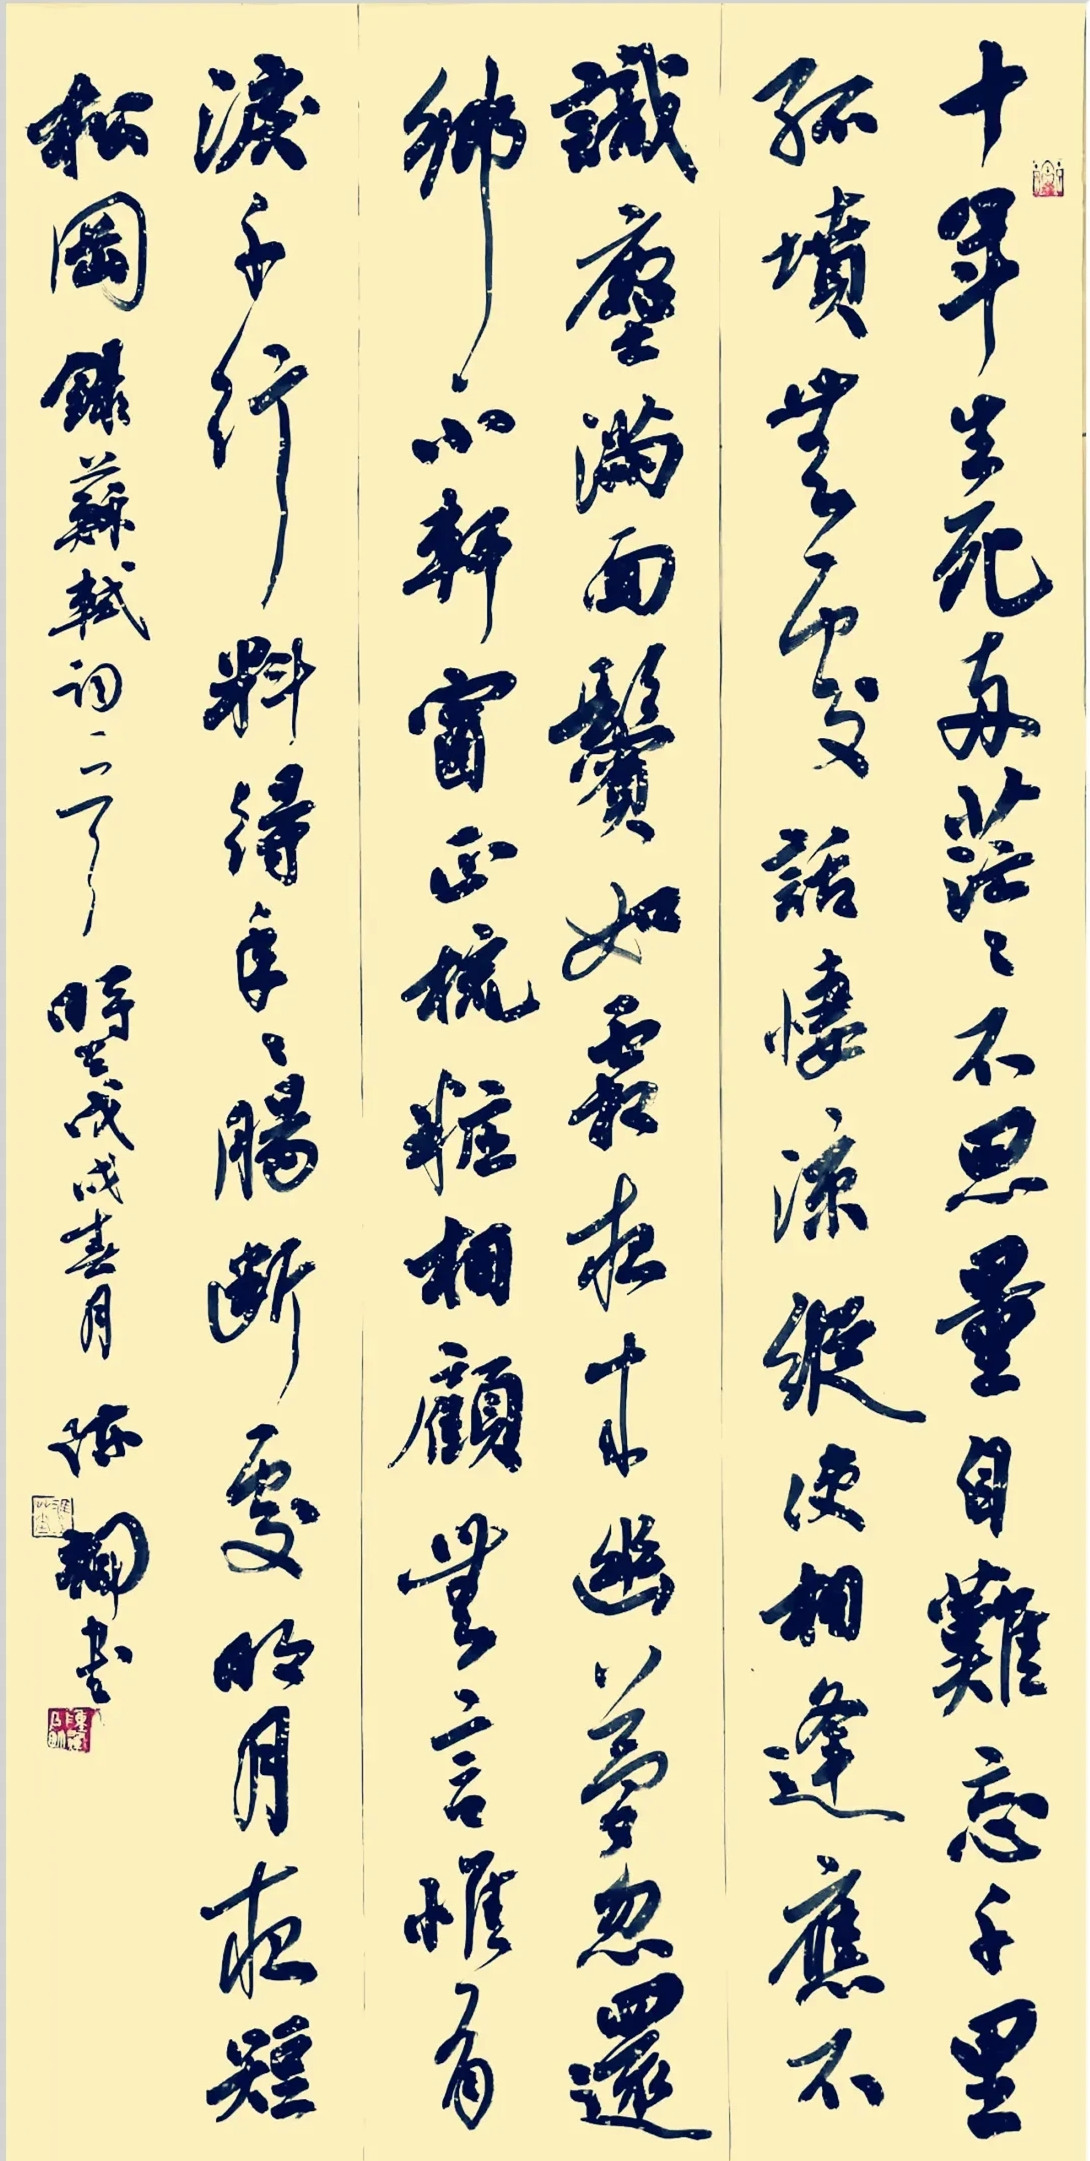 十年生死兩茫〻不思量自難忘千里
孤墳無處話悽涼縱使相逢應不
識塵滿面鬢如霜夜來幽夢忽還
鄉小軒窗正梳粧相顧無言惟有
淚千行料得年〻腸斷處明月夜短
松岡 錄蘇軾詞 時戊戌春月 陳書